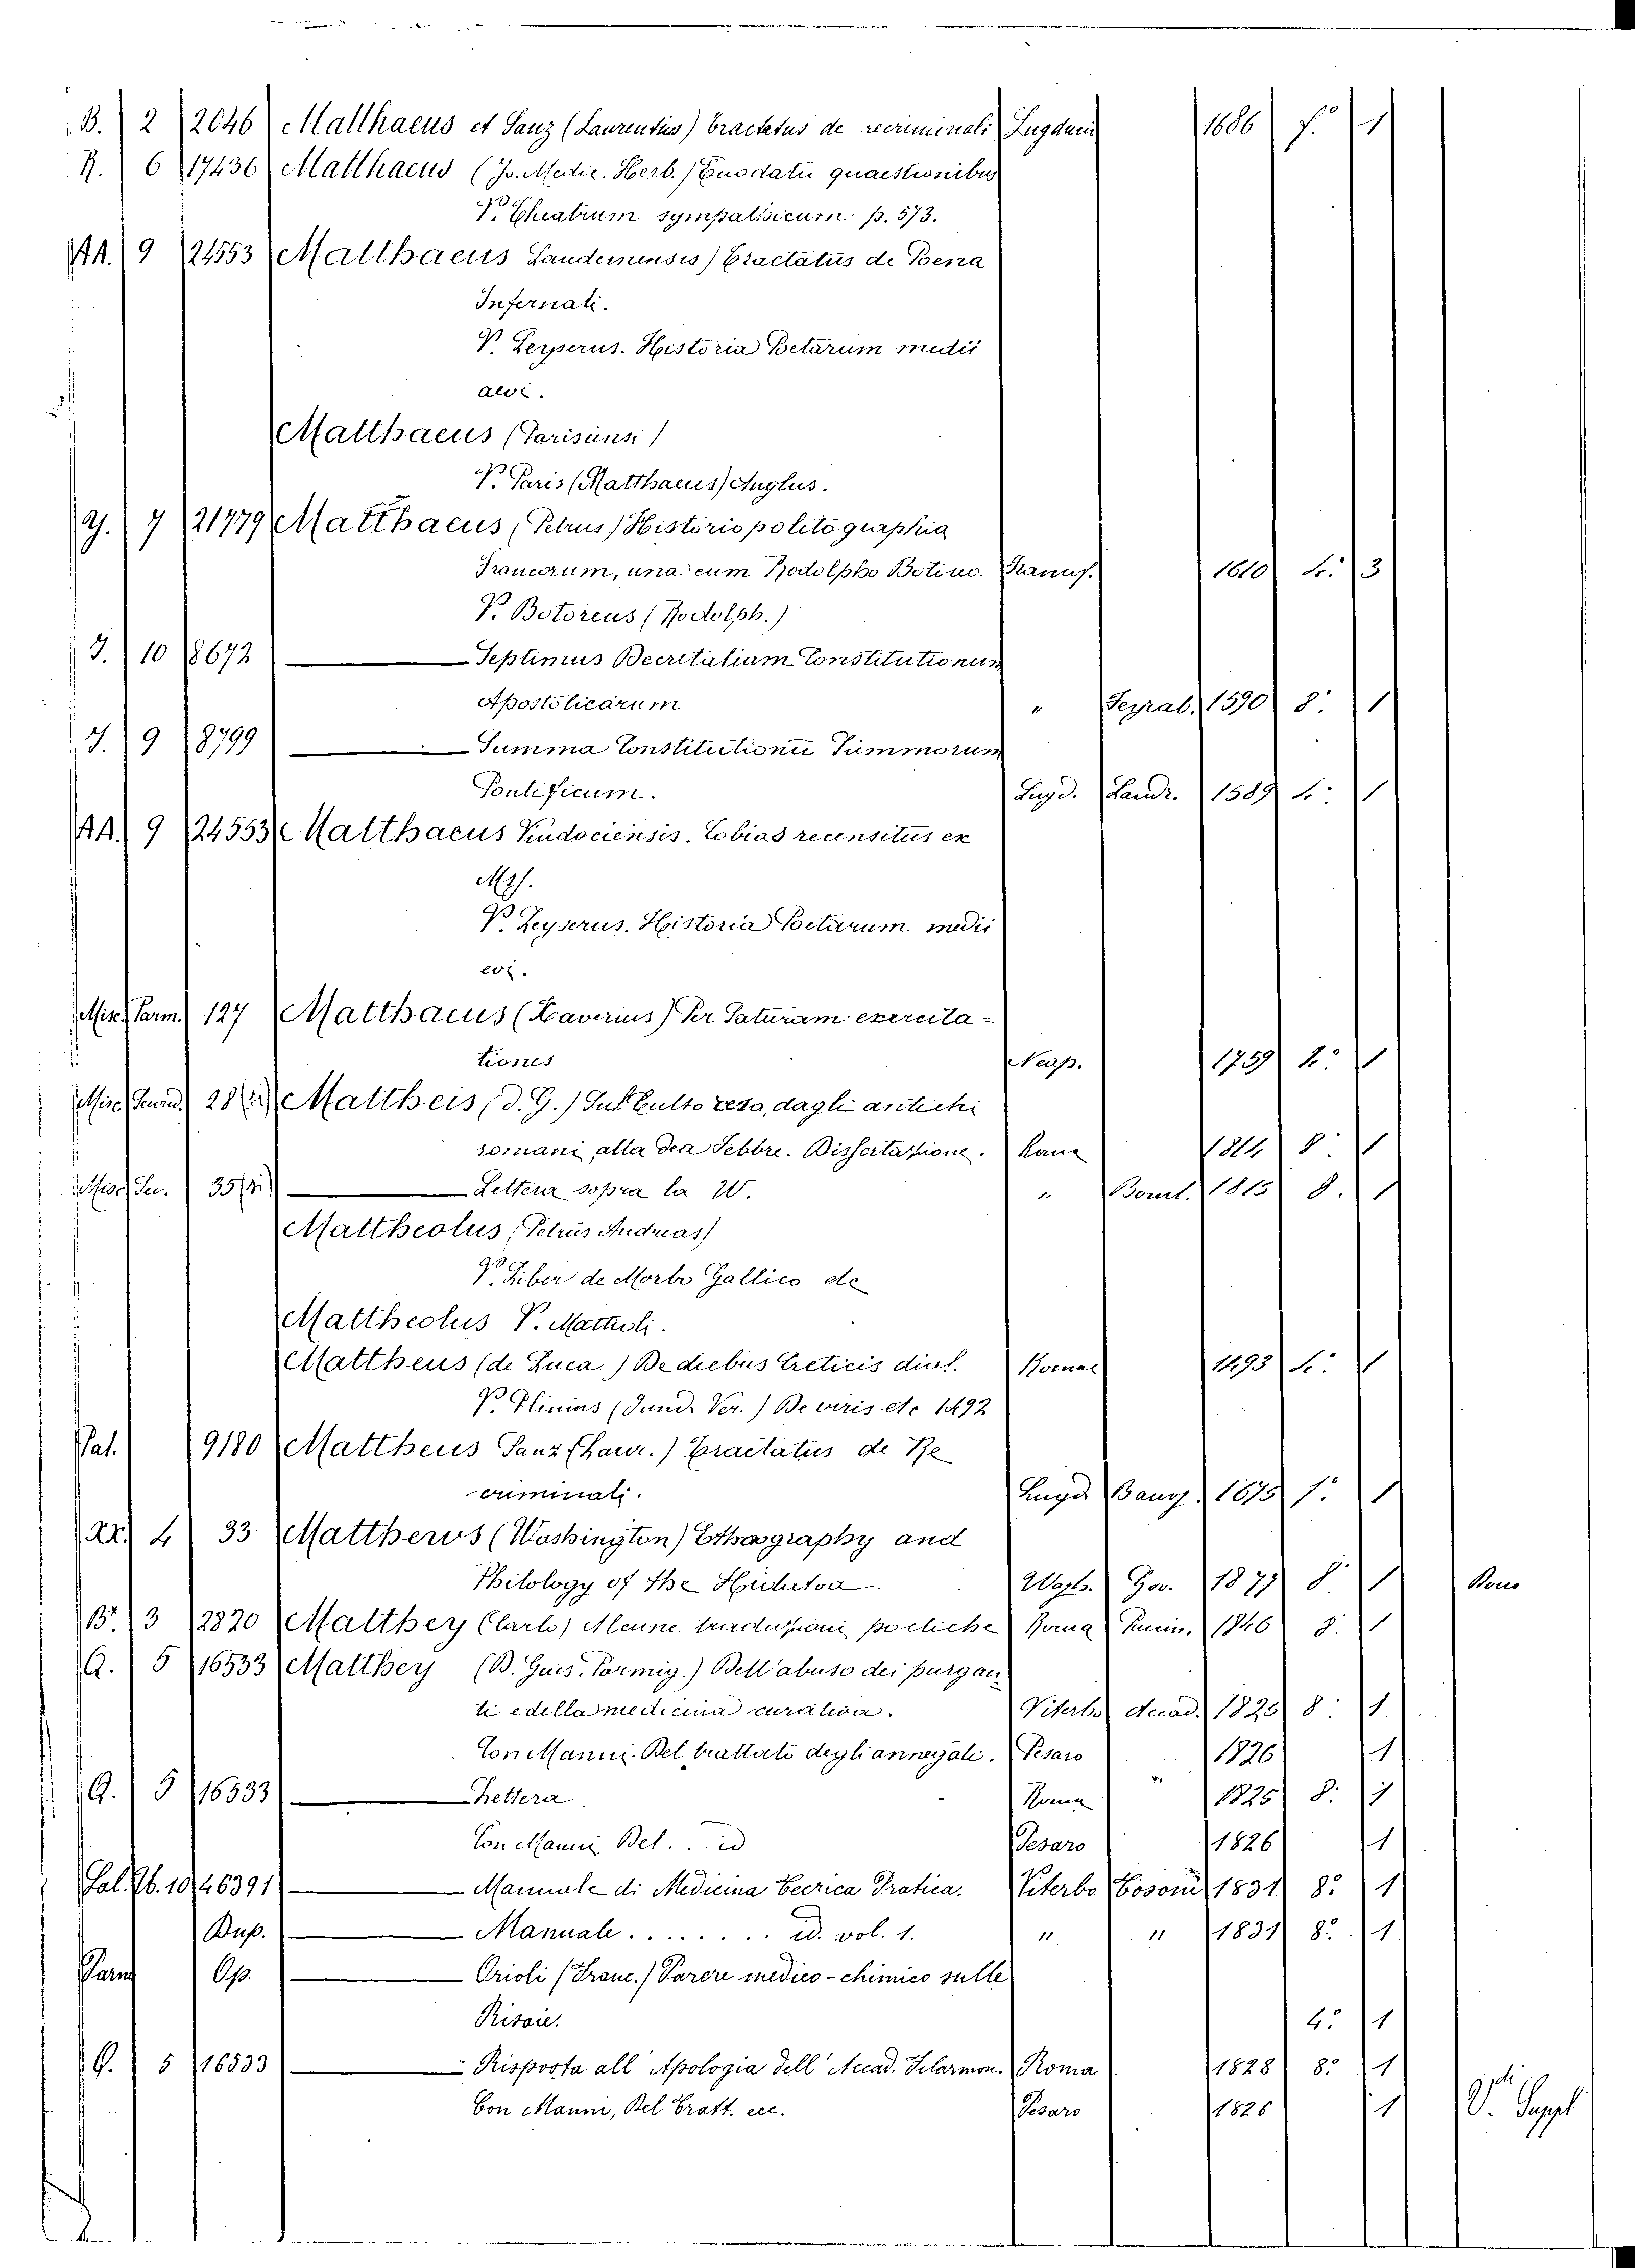 B. 2 2046 Matthaeus et Sanz (Laurentius) tractatus de recriminali Lugduni 1686 f.° 1
R. 6 17436 Matthaeus (Jo. Medic. Herb.) Enodatii quaestionibus
V. Theatrum sympatheticum p. 573.
AA. 9 24553 Matthaeus Landunensis) Tractatus de Poena
Infernali.
V. Leyserus. Historia Poetarum medii
aevi.
Matthaeus (Parisiensi)
V. Paris (Matthaeus) Anglus.
Y. 7 21779 Matthaeus (Petrus) Historiopolitographia
Francorum, una cum Rodolpho Botireo. 1610 4.° 3
V. Botoreus (Rodolph.)
J. 10 8672 Septimus Decretalium Constitutionum
Apostolicarum " 1590 8.° 1
J. 9 8799 Summa Constitutionu Summorum
Pontificum. Lugd. Landr. 1589 4.° 1
AA. 9 24553 Matthaeus Vindociensis. Tobias recensitus ex
Mss.
V. Leyserus. Historia Poetarum medii
evi.
Misc. Parm. 127 Matthaeus (Xaverius) Per Saturam exercita-
tiones Neap. 1759 4.° 1
Misc. 28 Mattheis (d. G.) Sul Culto reso, dagli antichi
romani, alla dea Febbre. Dissertazione. Roma 1814 8.° 1
Misc. 35 Lettera sopra la W. " Bomb. 1815 8. 1
Mattheolus (Petrus Andreas)
V. Liber de Morbo Gallico de
Mattheolus V. Mattioli.
Mattheus (de Luca) De diebus Creticis dist. Romae 1493 4.° 1
V. Plinius (Jund. Ver.) De viris etc 1492
Pal. 9180 Mattheus Sanz (Laur.) Tractatus de Re
criminali. Lugd 1675 f.° 1
XX. 4 33 Matthews (Washington) Ethnography and
Philology of the Hidatsa. Wash. Gov. 1877 8.° 1 Dono
B. 3 2820 Matthey (Carlo) Alcune traduzioni poetiche Roma Punin. 1846 8. 1
Q. 5 16533 Matthey (B. Guis. Pormig.) Dell'abuso dei purgan
ti e della medicina curativa. Viterbo 1825 8.° 1
Con Manni. Del trattato degli annegati. Pesaro 1826 1
Q. 5 16533 Lettera Roma " 1825 8. 1
Con Manni Del. .. id Pesaro 1826 1
Sal. Pb. 10 46391 Manuale di Medicina Teorica Pratica. Viterbo Tosoni 1831 8.° 1
Dup. Manuale ........ id. vol. 1. " " 1831 8.° 1
Op. Orioli (Franc.) Parere medico-chimico sulle
Risaie. 4.° 1
Q. 5 16533 Risposta all' Apologia dell' Accad. Filarmon. Roma 1828 8.° 1
Con Manni, Del Tratt. ecc. Pesaro 1826 1 V. Suppl